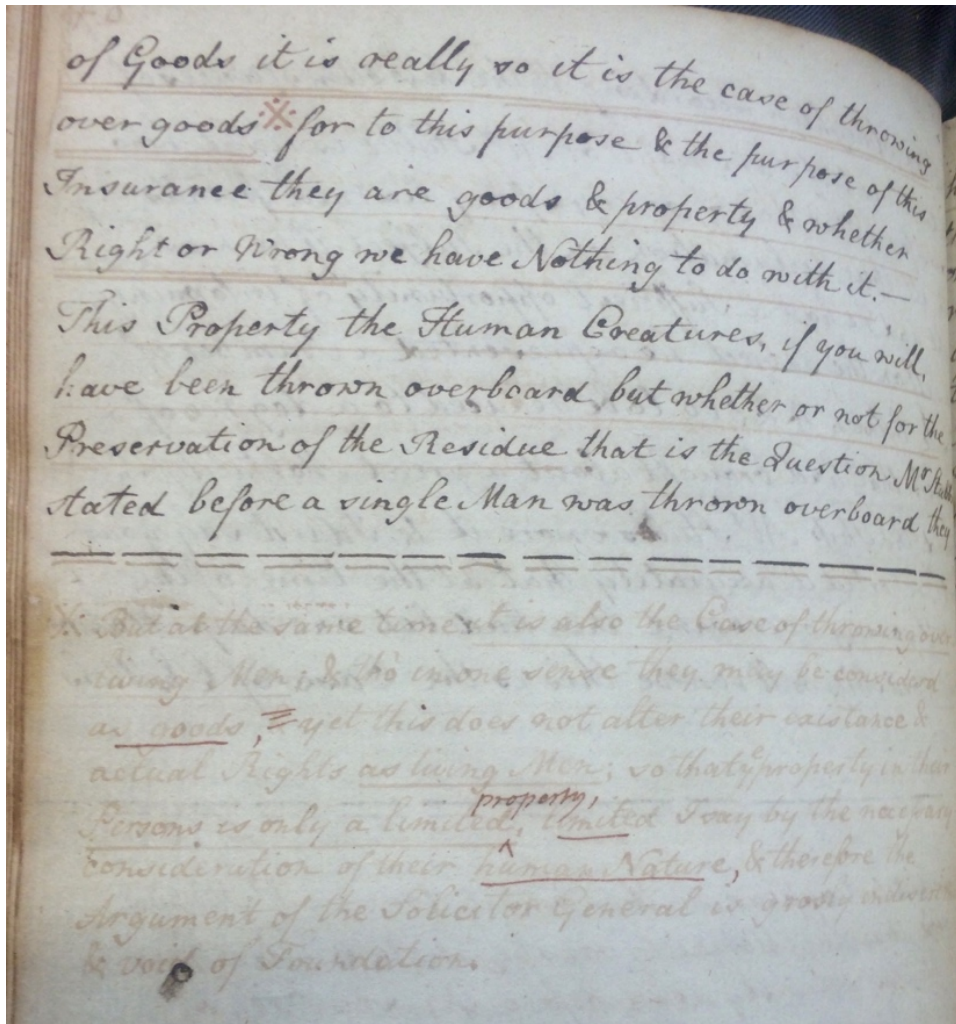 of Goods it is really so it is the case of throwing
over goods※ for to this purpose & the purpose of this
Insurance they are goods & property & whether
Right or Wrong we have Nothing to do with it.—
This Property the Human Creatures, if you will,
have been thrown overboard but whether or not for the
Preservation of the Residue that is the Question Mr Stubbs
stated before a single Man was thrown overboard they
※ But at the same time it is also the Case of throwing over
living Men; & tho' in one sense they may be considered
as goods, yet this does not alter their existance &
actual Rights as living Men; so that ye property in their
property,
Persons is only a limited, limited I say by the necessary
consideration of their human Nature, & therefore the
Argument of the Solicitor General is grossly
& void of Foundation.